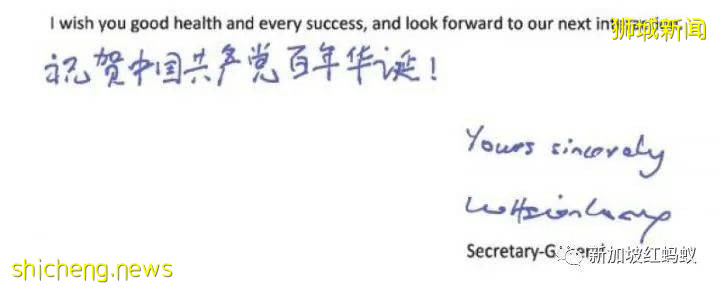 I wish you good health and every success, and look forward to our next
狮城新闻
祝贺中国共产党百年华诞!
Yours sincerely
Secretary-General
新加坡红蚂蚁
shicheng.news